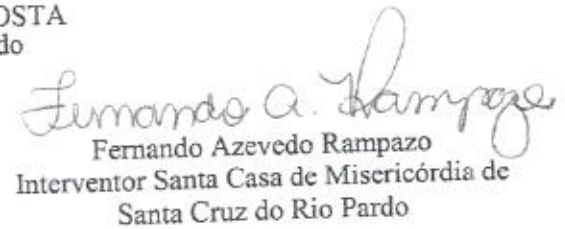 OSTA
do
Fernando A. Rampazo
Fernando Azevedo Rampazo
Interventor Santa Casa de Misericórdia de
Santa Cruz do Rio Pardo